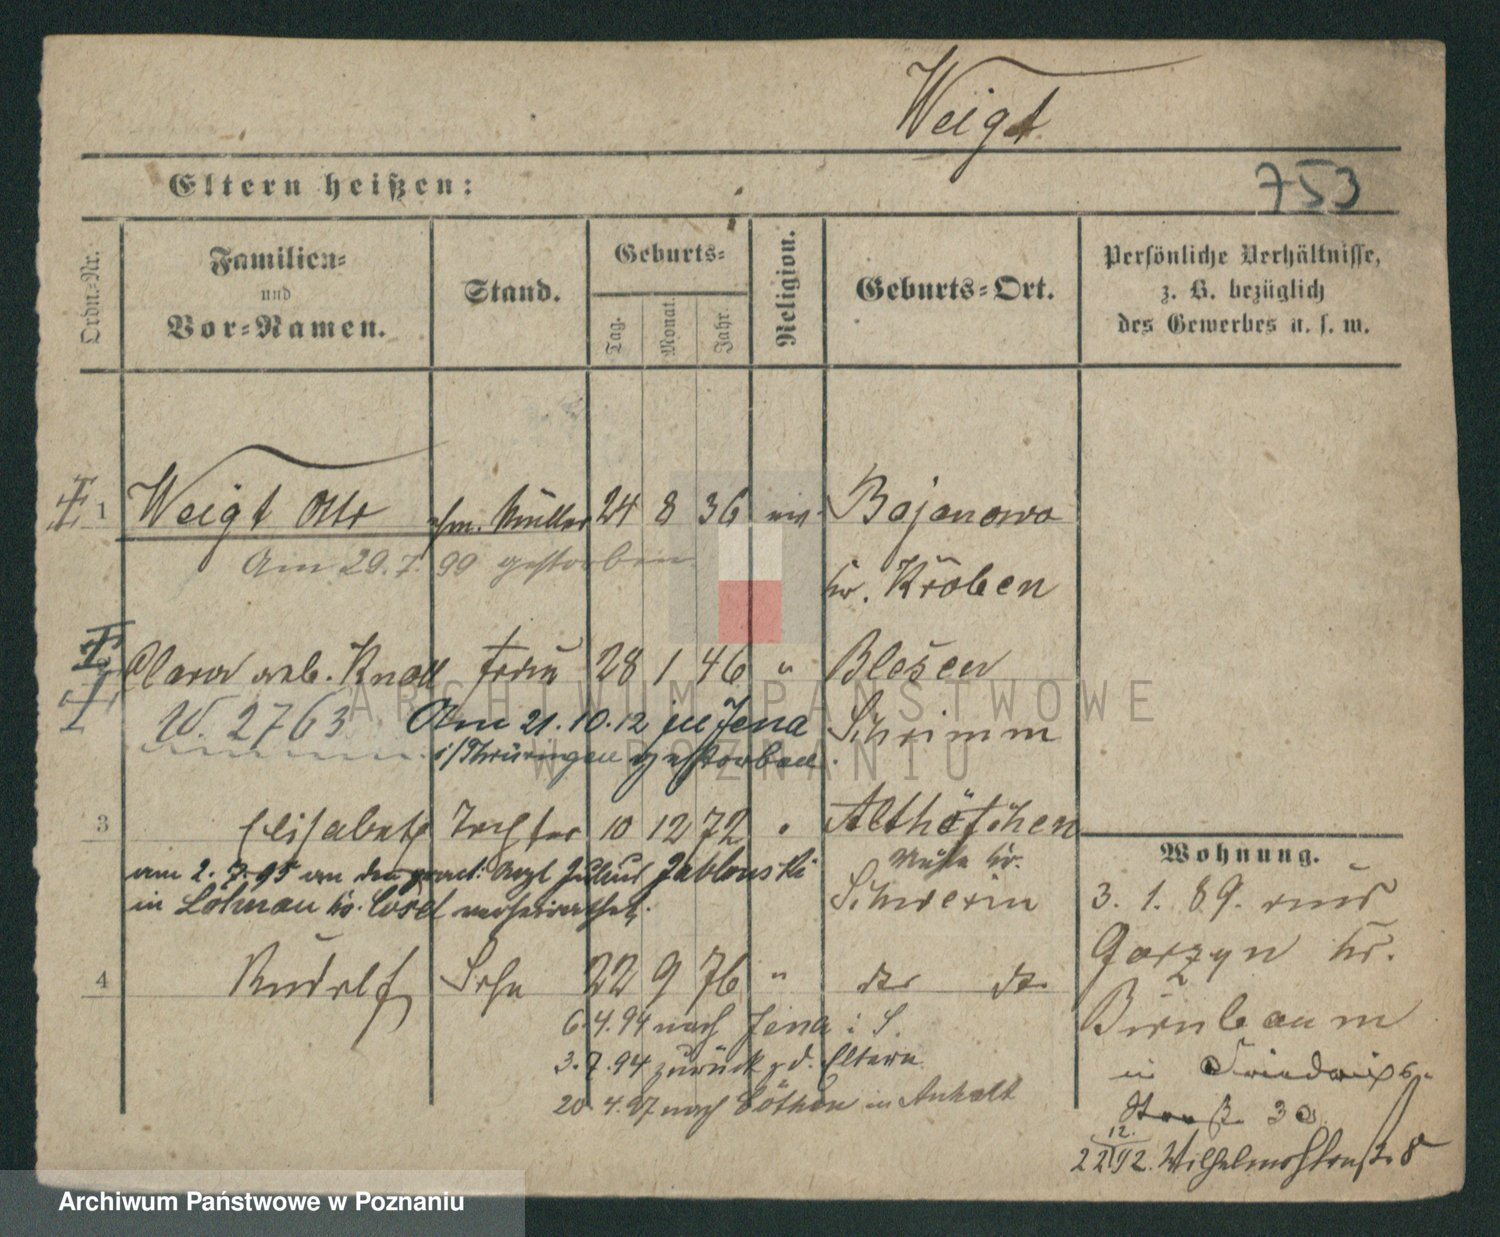 Weigt
Eltern heißen:
753
Ordn.-Nr.
Familien-
und
Vor-Namen.
Stand.
Geburts-
Tag.
Monat.
Jahr.
Religion.
Geburts-Ort.
Persönliche Verhältnisse,
z. B. bezüglich
des Gewerbes u. s. w.
1 Weigt Otto ehm. Müller 24 8 36 ev. Bojanowo
Am 29. 7. 99 gestorben
Kr. Kröben
Clara geb. Knoll Frau 28 1 46 " Blesen
W. 2763 Am 21.10.12 zu Jena
Schrimm
i/Thüringen gestorben.
3 Elisabeth Tochter 10 12 72 " Althöfchen
am 2. 7. 95 an den pract. Arzt Julius Jablonski
Mühle Kr.
in Lohnau Kr. Cosel verheirathet.
Schwerin
4 Rudolf Sohn 22 9 76 " do do
6.4.94 nach Jena i. S.
3.7.94 zurück z. d. Eltern
20.4.97 nach Cöthen in Anhalt
Wohnung.
3. 1. 89. aus
Gorzyn Kr.
Birnbaum
in Friedrichs-
Straße 30
22/12 92. Wilhelmstraße 8
ARCHIWUM PAŃSTWOWE
W POZNANIU
Archiwum Państwowe w Poznaniu